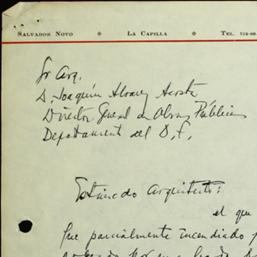 Salvador Novo * La Capilla * Tel.
Sr Arq.
D. Joaquín Alvarez Acosta
Director Gneral de Obras Públicas
Departament del D.F.
Estimado Arquitecto:
el que
fue parcialmente incendiado